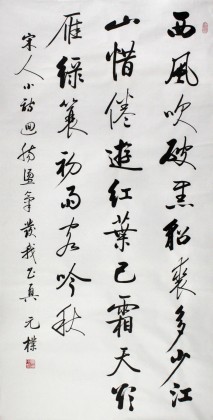 西風吹破黑貂裘多少江
山惜倦遊紅葉已霜天欲
雁綠蓑初雨客吟秋
宋人小詩回腸盪氣 我 真 元樸